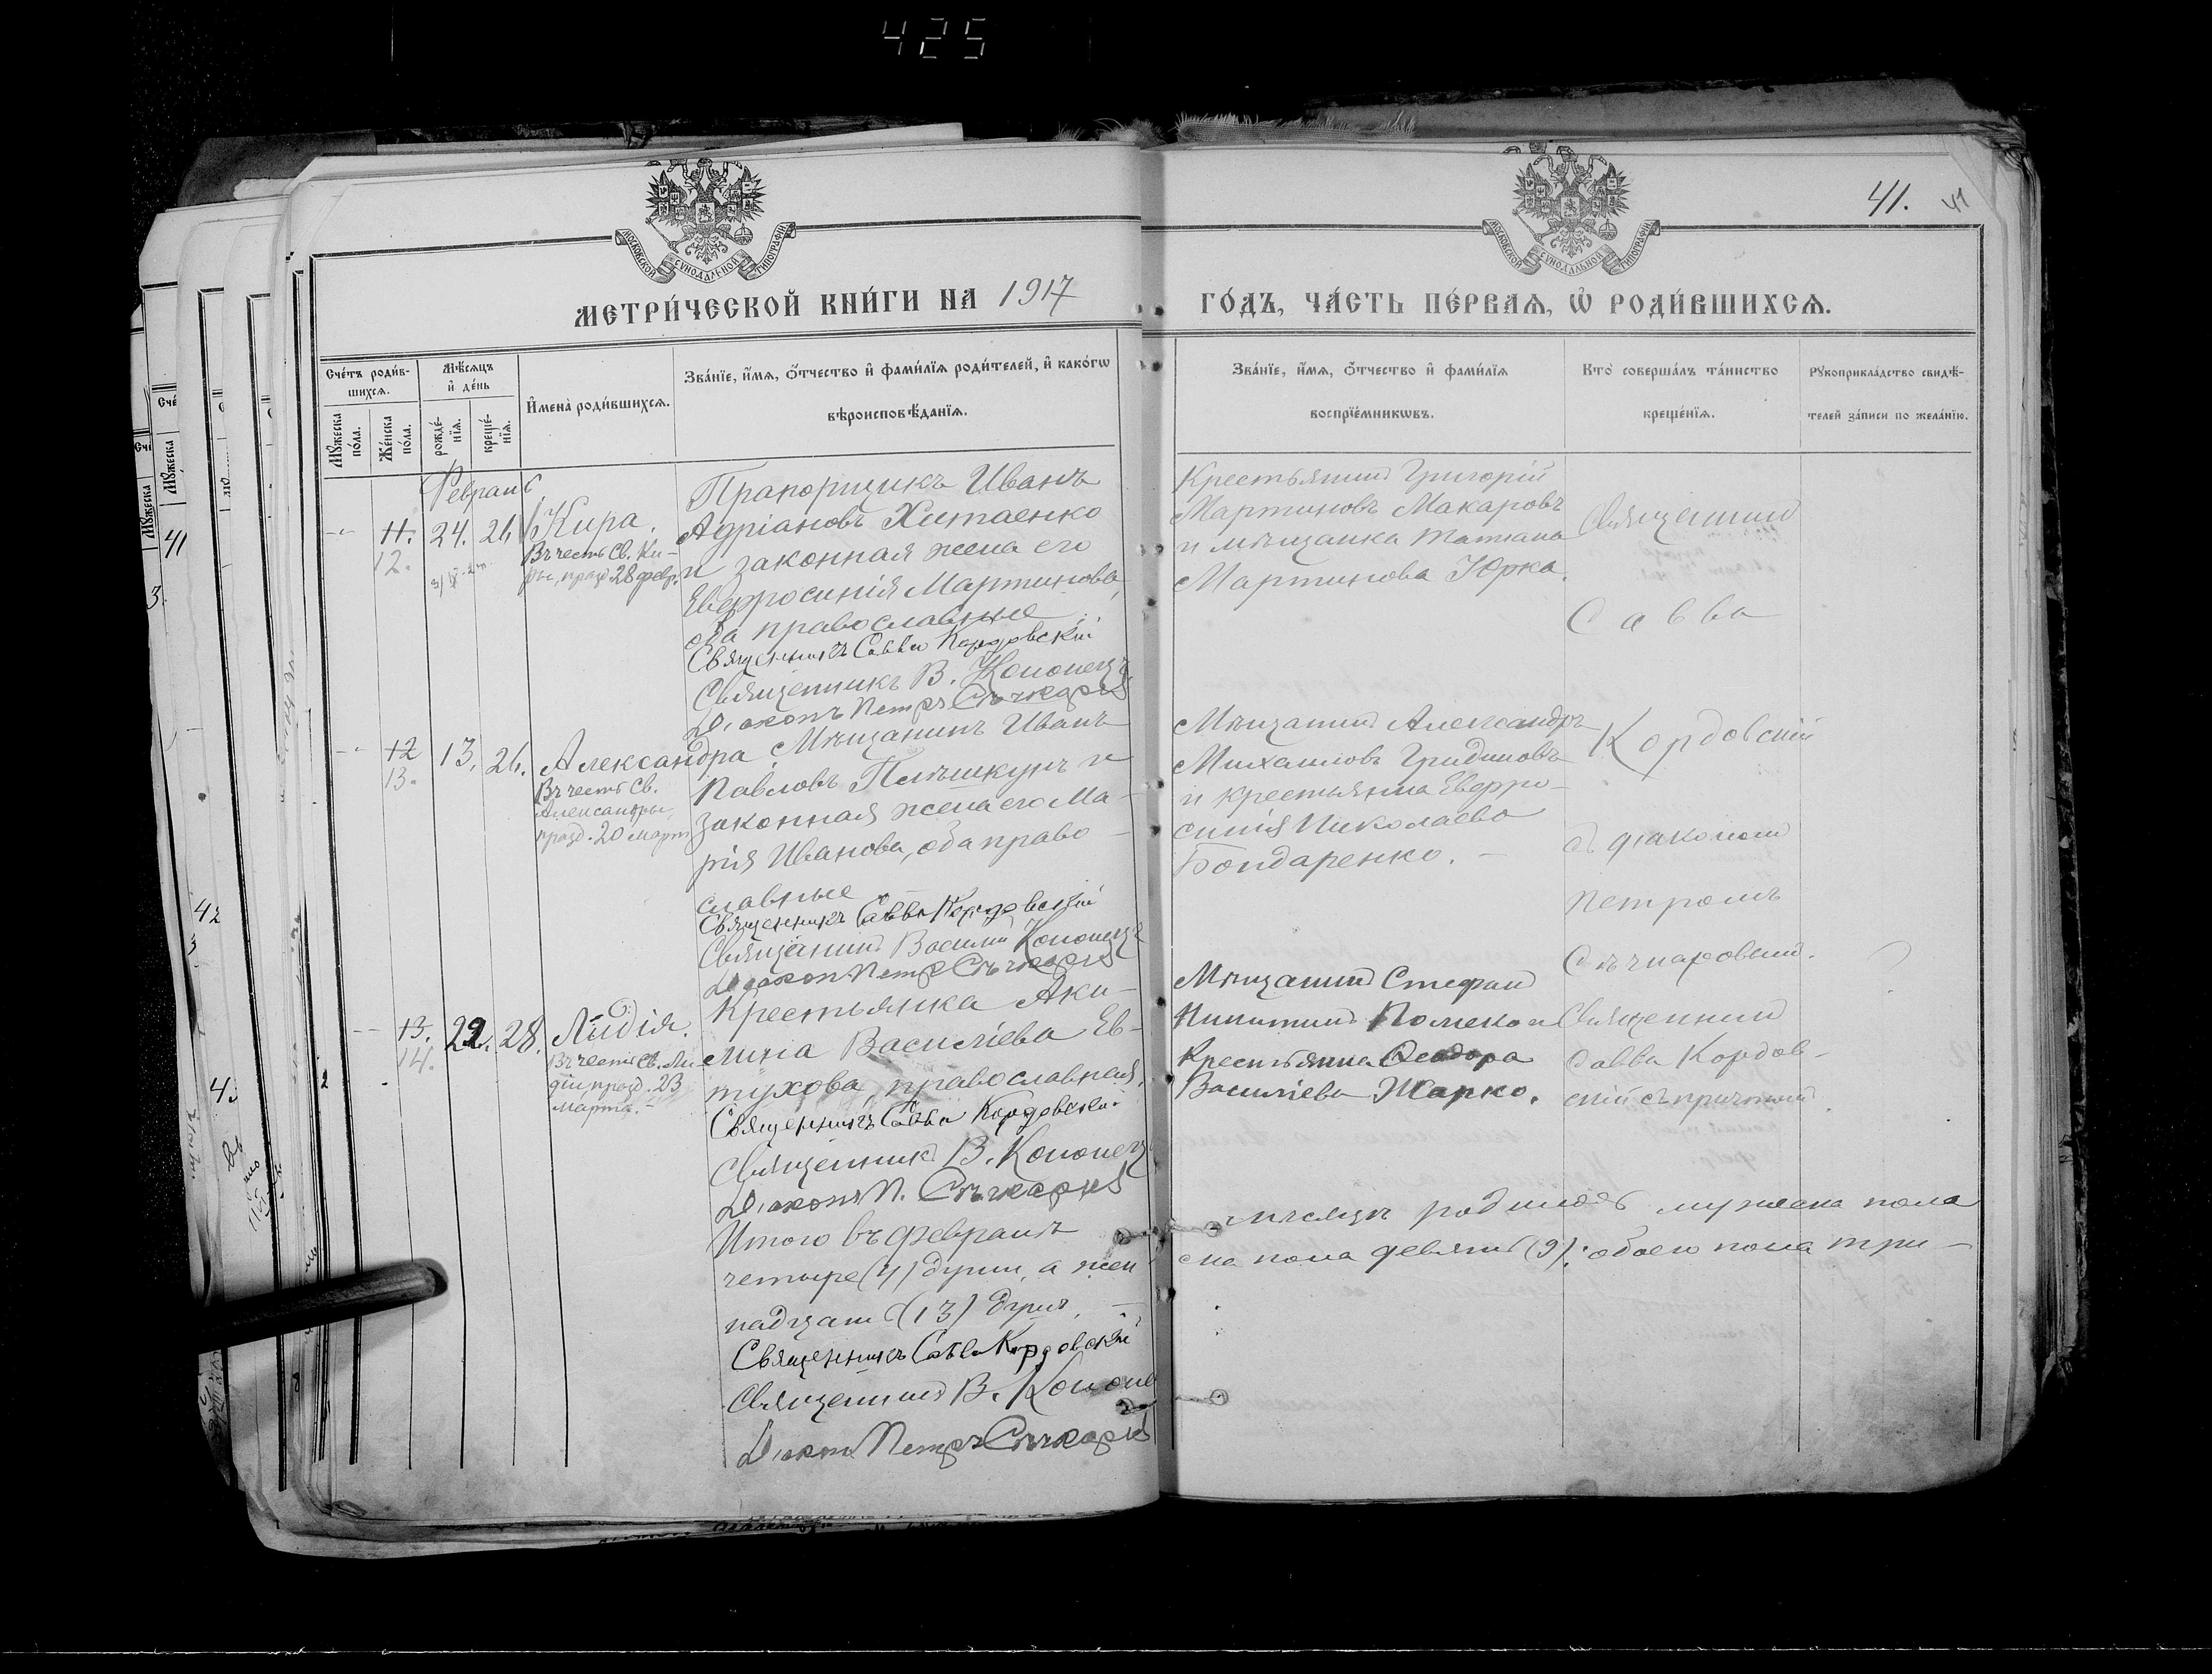 425
41. 41
МОСКОВСКОЙ СѴНОДАЛЬНОЙ ТИПОГРАФІИ
МОСКОВСКОЙ СѴНОДАЛЬНОЙ ТИПОГРАФІИ
МЕТРИ́ЧЕСКОЙ КНИ́ГИ НА 1917
ГО́ДЪ, ЧА́СТЬ ПЕ́РВАѦ, Ѡ҆ РОДИ́ВШИХСѦ.
Сче́тъ роди́в-
шихсѧ.
Мꙋ́жеска по́ла.
Же́нска по́ла.
Мѣ́сѧцъ
и҆ де́нь
рожде́-
нїѧ.
креще́-
нїѧ.
И҆мена̀ роди́вшихсѧ.
Зва́нїе, и҆́мѧ, ѻ҆́тчество и҆ фами́лїѧ роди́телей, и҆ како́гѡ
вѣроисповѣ́данїѧ.
Зва́нїе, и҆́мѧ, ѻ҆́тчество и҆ фами́лїѧ
воспрїе́мникѡвъ.
Кто̀ соверша́лъ та́инство
креще́нїѧ.
Рꙋкоприкла́дство свидѣ́-
телей за́писи по жела́нїю.
Февраль
11. 24. 26. Кира.
12.
Въ честь Св. Ки-
ры, празд. 28 февр.
Прапорщикъ Иванъ
Адріановъ Хитаенко
и законная жена его
Евфросинія Мартинова,
оба православные
Священникъ Савва Кордовскій
Священникъ В. Кононецъ
Діаконъ Петръ Сѣчкарев
Крестьянинъ Григорій
Мартиновъ Макаровъ
и мѣщанка Татіана
Мартинова Юрка.
Священникъ
Савва
Кордовскій
съ діакономъ
Петромъ
Сѣчкаревымъ.
12 13. 26. Александра
13.
Въ честь Св.
Александры,
празд. 20 март
Мѣщанинъ Иванъ
Павловъ Плѣшкунъ и
законная жена его Ма-
рія Иванова, оба право-
славные
Священникъ Савва Кордовскій
Священникъ Василій Кононецъ
Діаконъ Петръ Сѣчкарев
Мѣщанинъ Александръ
Михаиловъ Гридиновъ
и крестьянка Евфро-
синія Николаева
Бондаренко. -
13. 22. 28. Лидія.
14.
Въ честь Св. Ли-
діи, празд. 23
Марта. -
Крестьянка Аки-
лина Василіева Ев-
тухова, православная,
Священникъ Савва Кордовскій
Священникъ В. Кононецъ
Діаконъ П. Сѣчкарев
Мѣщанинъ Стефанъ
Никитинъ
Крестьянка Ѳеодора
Василіева Жарко.
Священникъ
Савва Кордов-
скій съ причтомъ.
Итого въ февралѣ мѣсяцѣ родилось мужеска пола
четыре (4) души, а женска пола девять (9); обоего пола три-
надцать (13) душъ. -
Священникъ Савва Кордовскій
Священникъ В. Кононе
Діаконъ Петръ Сѣчкарев